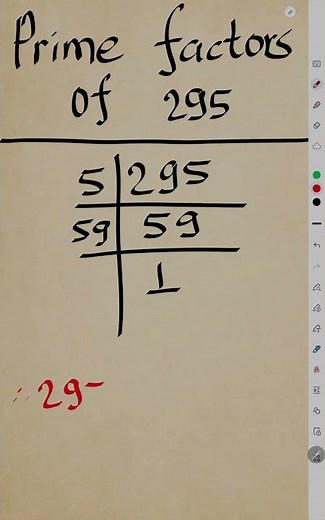 Prime factors
of 295
5 | 295
59 | 59
1
∴ 29